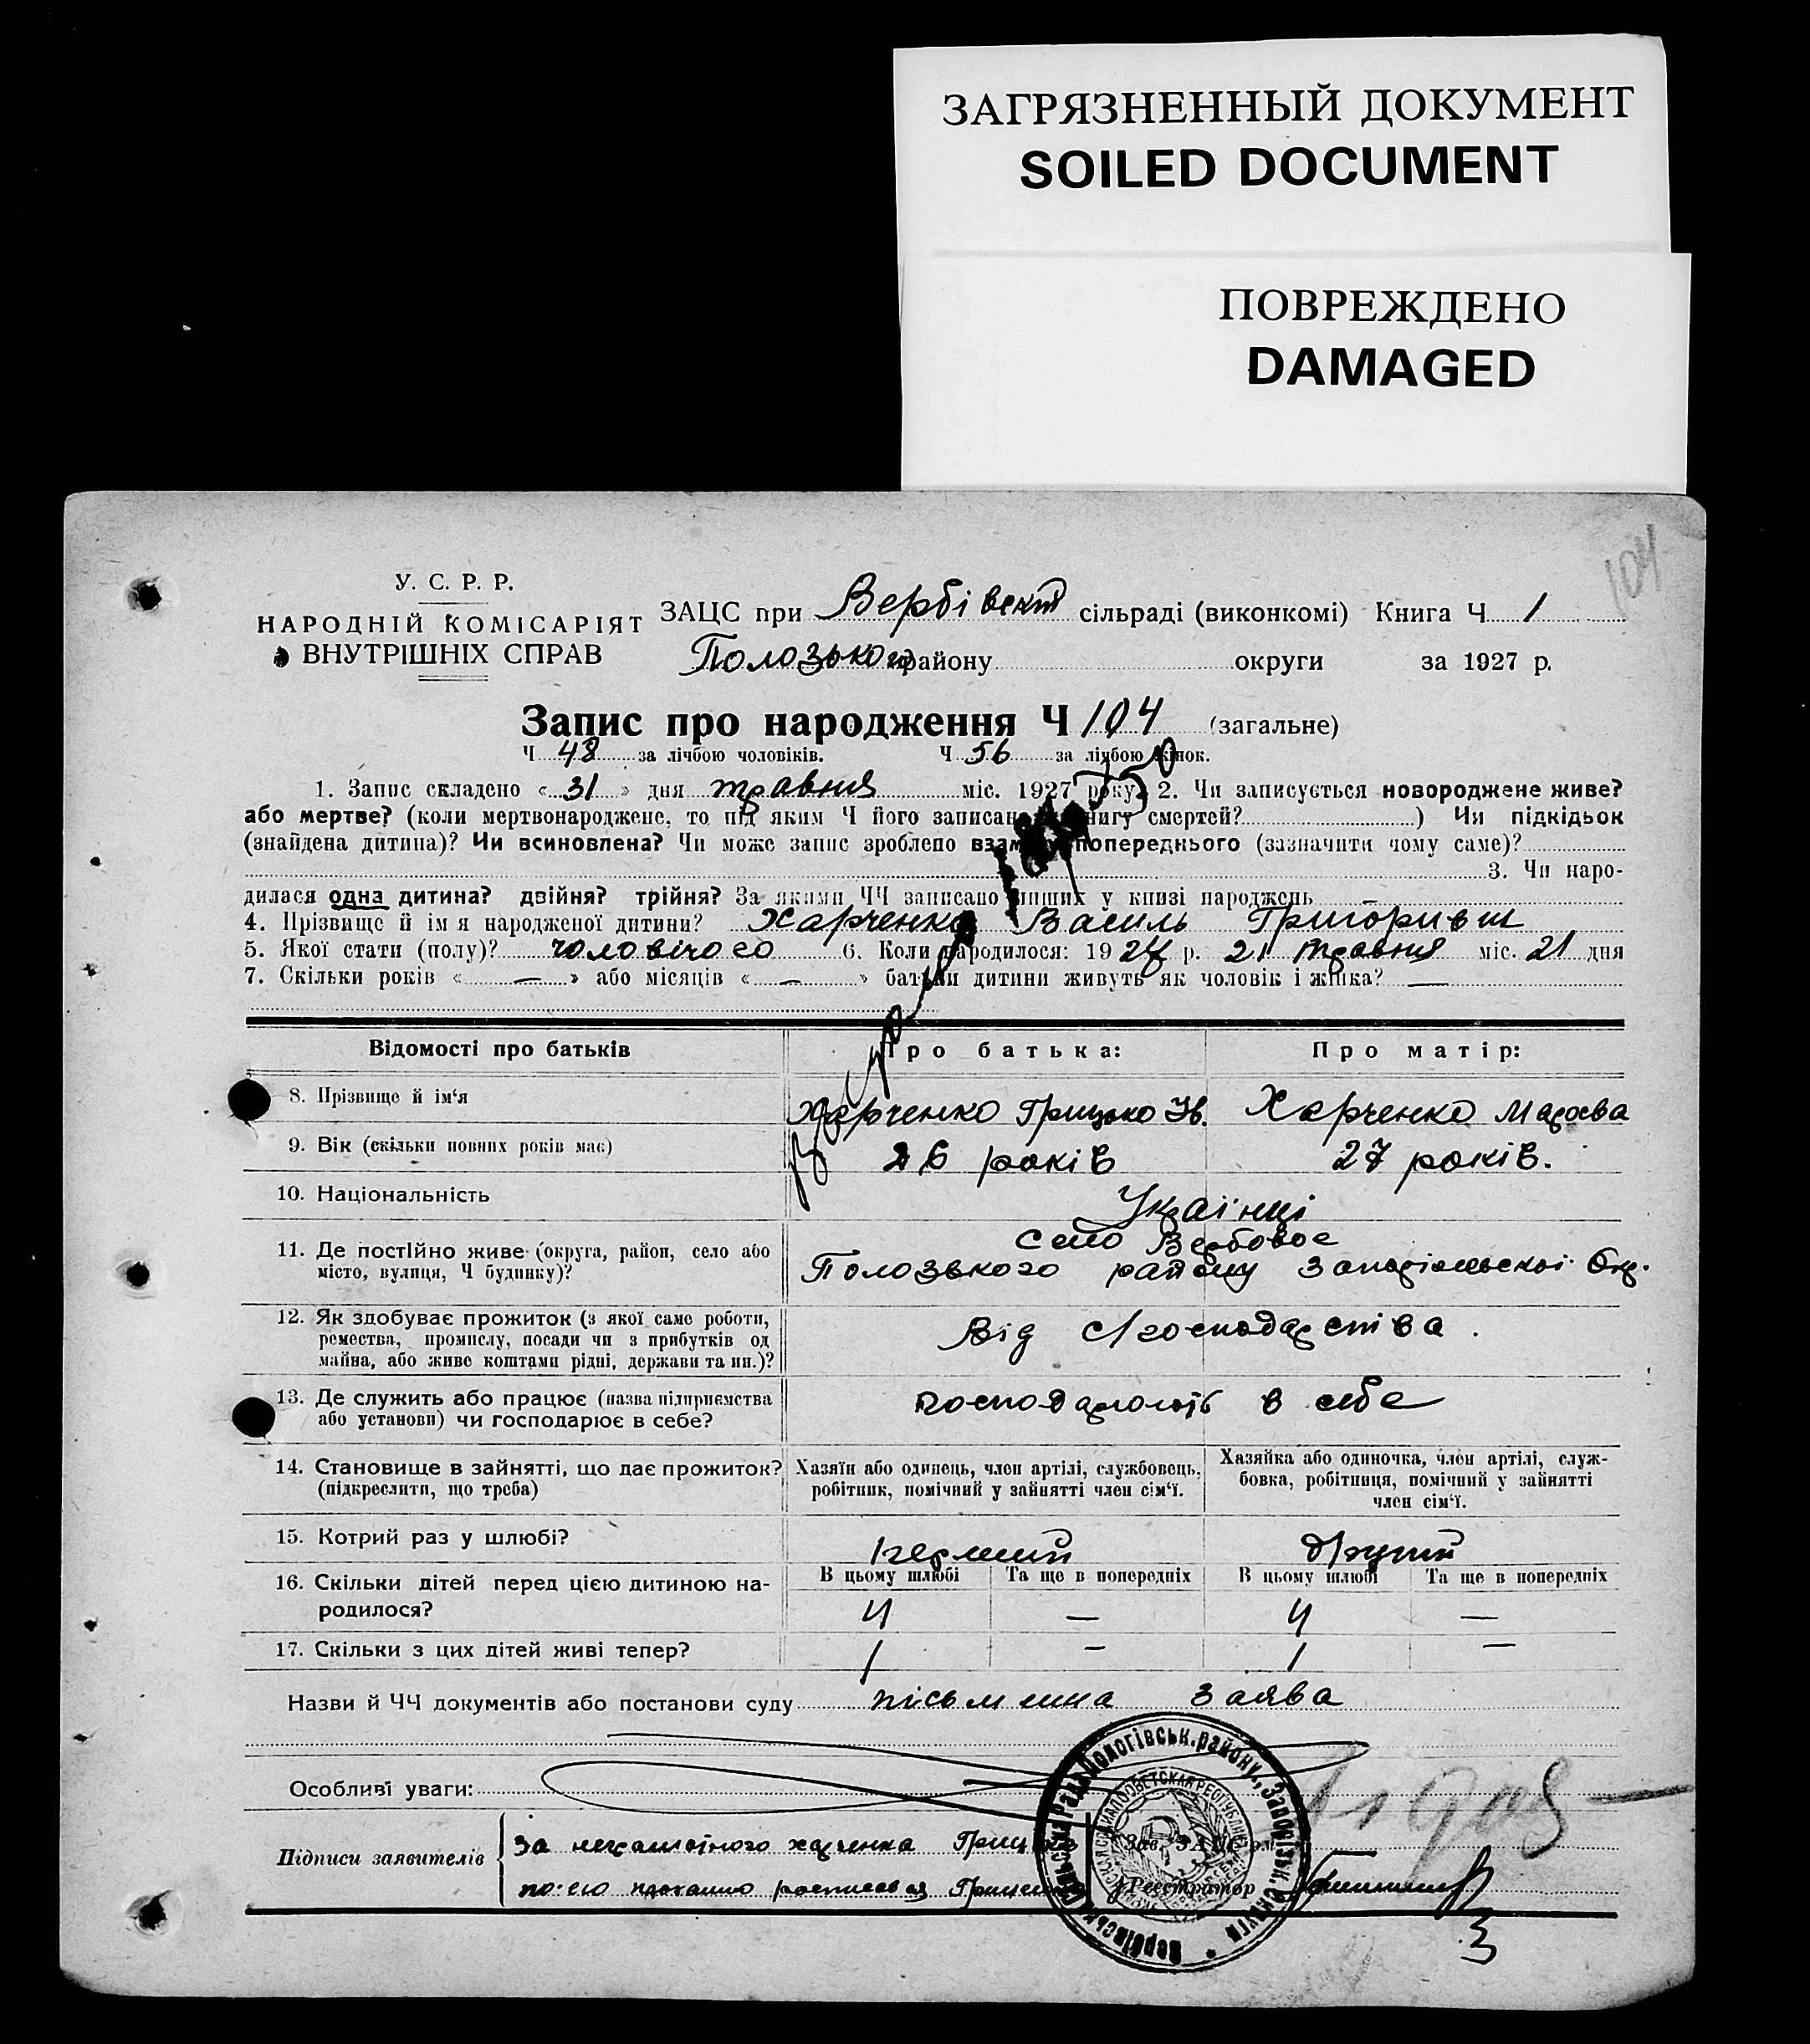 ЗАГРЯЗНЕННЫЙ ДОКУМЕНТ
SOILED DOCUMENT
ПОВРЕЖДЕНО
DAMAGED
104
У. С. Р. Р.
НАРОДНІЙ КОМІСАРІЯТ
ВНУТРІШНІХ СПРАВ
ЗАЦС при Вербівскій сільраді (виконкомі) Книга Ч 1
Полозького району округи за 1927 р.
Запис про народження Ч 104 (загальне)
Ч 48 за лічбою чоловіків. Ч 56 за лічбою жінок.
1. Запис складено « 31 » дня травня міс. 1927 року 2. Чи записується новороджене живе?
або мертве? (коли мертвонароджене, то під яким Ч його записано книгу смертей? ) Чи підкідьок
(знайдена дитина)? Чи всиновлена? Чи може запис зроблено взамін попереднього (зазначити чому саме)?
3. Чи наро-
дилася одна дитина? двійня? трійня? За якими ЧЧ записано инших у книзі народжень –
4. Прізвище й імя народженої дитини? Харченко Василь Григоривш
5. Якої стати (полу)? чоловічого 6. Коли народилося: 1927 р. 21 травня міс. 21 дня
7. Скільки років « — » або місяців « — » батьки дитини живуть як чоловік і жінка? —
Відомості про батьків Про батька: Про матір:
8. Прізвище й ім'я Харченко Грицько Ів. Харченко
9. Вік (скільки повних років має) 26 років 27 років.
10. Національність Українці
11. Де постійно живе (округа, район, село або місто, вулиця, Ч будинку)? село Вербовое
Полозького району Запоріжської Окр.
12. Як здобуває прожиток (з якої саме роботи, ремества, промислу, посади чи з прибутків од майна, або живе коштами рідні, держави та ин.)? Від с/господарства.
13. Де служить або працює (назва підприємства або установи) чи господарює в себе? господарюють в себе
14. Становище в зайнятті, що дає прожиток? (підкреслити, що треба) Хазяїн або одинець, член артілі, службовець, робітник, помічний у зайнятті член сім'ї. Хазяйка або одиночка, член артілі, служ-
бовка, робітниця, помічний у зайнятті
член сім'ї.
15. Котрий раз у шлюбі? перший другий
16. Скільки дітей перед цією дитиною на-
родилося? В цьому шлюбі Та ще в попередніх В цьому шлюбі Та ще в попередніх
4 — 4 —
17. Скільки з цих дітей живі тепер? 1 – 1 —
Назви й ЧЧ документів або постанови суду письмина заява
Особливі уваги:
Підписи заявителів
за неграмотного харченка Грицька
по его прозьбі росписався Грищенко
Зав. ЗАЦС'ом
Реєстратор
Вербівська Сільська Рада Пологівськ. району, Запорізьк. округи
3